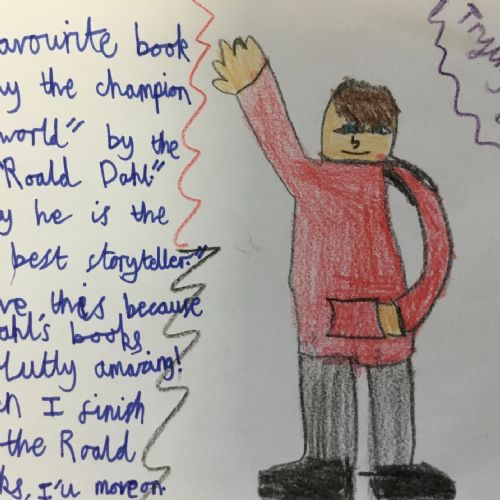 avourite book
y the champion
world" by the
"Roald Dahl"
y he is the
best storyteller."
ve this because
ahl's books
lutly amazing!
n I finish
the Roald
ks, I'll move on
Tryin